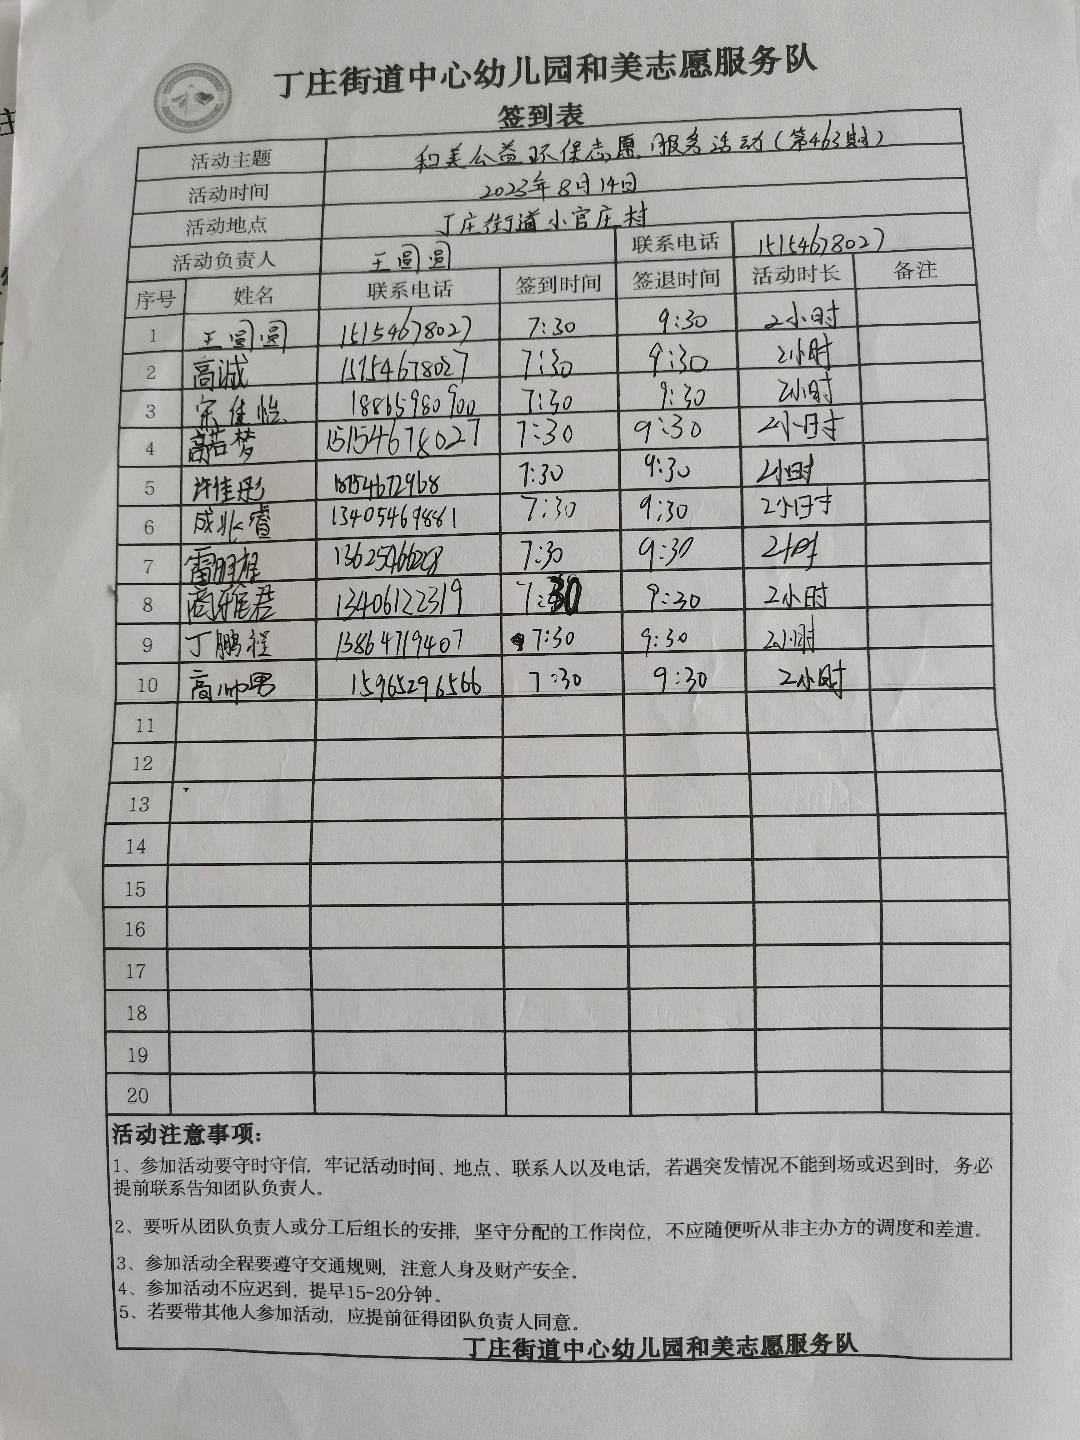 和
丁庄街道中心幼儿园和美志愿服务队
签到表
活动主题 和美公益环保志愿服务活动(第463期)
活动时间 2023年8月14日
活动地点 丁庄街道小官庄村
活动负责人 王圆圆 联系电话 15154678027
序号 姓名 联系电话 签到时间 签退时间 活动时长 备注
1 王圆圆 15154678027 7:30 9:30 2小时
2 高诚 15154678027 7:30 9:30 2小时
3 宋佳恺 18865980900 7:30 9:30 2小时
4 高若梦 15154678027 7:30 9:30 2小时
5 许佳彤 18154672968 7:30 9:30 2小时
6 成兆睿 13405469881 7:30 9:30 2小时
7 雷朋雄 7:30 9:30 2小时
8 商雅君 13406122319 7:30 9:30 2小时
9 丁鹏程 13864719407 7:30 9:30 2小时
10 高帅男 15965296566 7:30 9:30 2小时
11
12
13
14
15
16
17
18
19
20
活动注意事项:
1、参加活动要守时守信,牢记活动时间、地点、联系人以及电话,若遇突发情况不能到场或迟到时,务必
提前联系告知团队负责人。
2、要听从团队负责人或分工后组长的安排,坚守分配的工作岗位,不应随便听从非主办方的调度和差遣。
3、参加活动全程要遵守交通规则,注意人身及财产安全。
4、参加活动不应迟到,提早15-20分钟。
5、若要带其他人参加活动,应提前征得团队负责人同意。
丁庄街道中心幼儿园和美志愿服务队